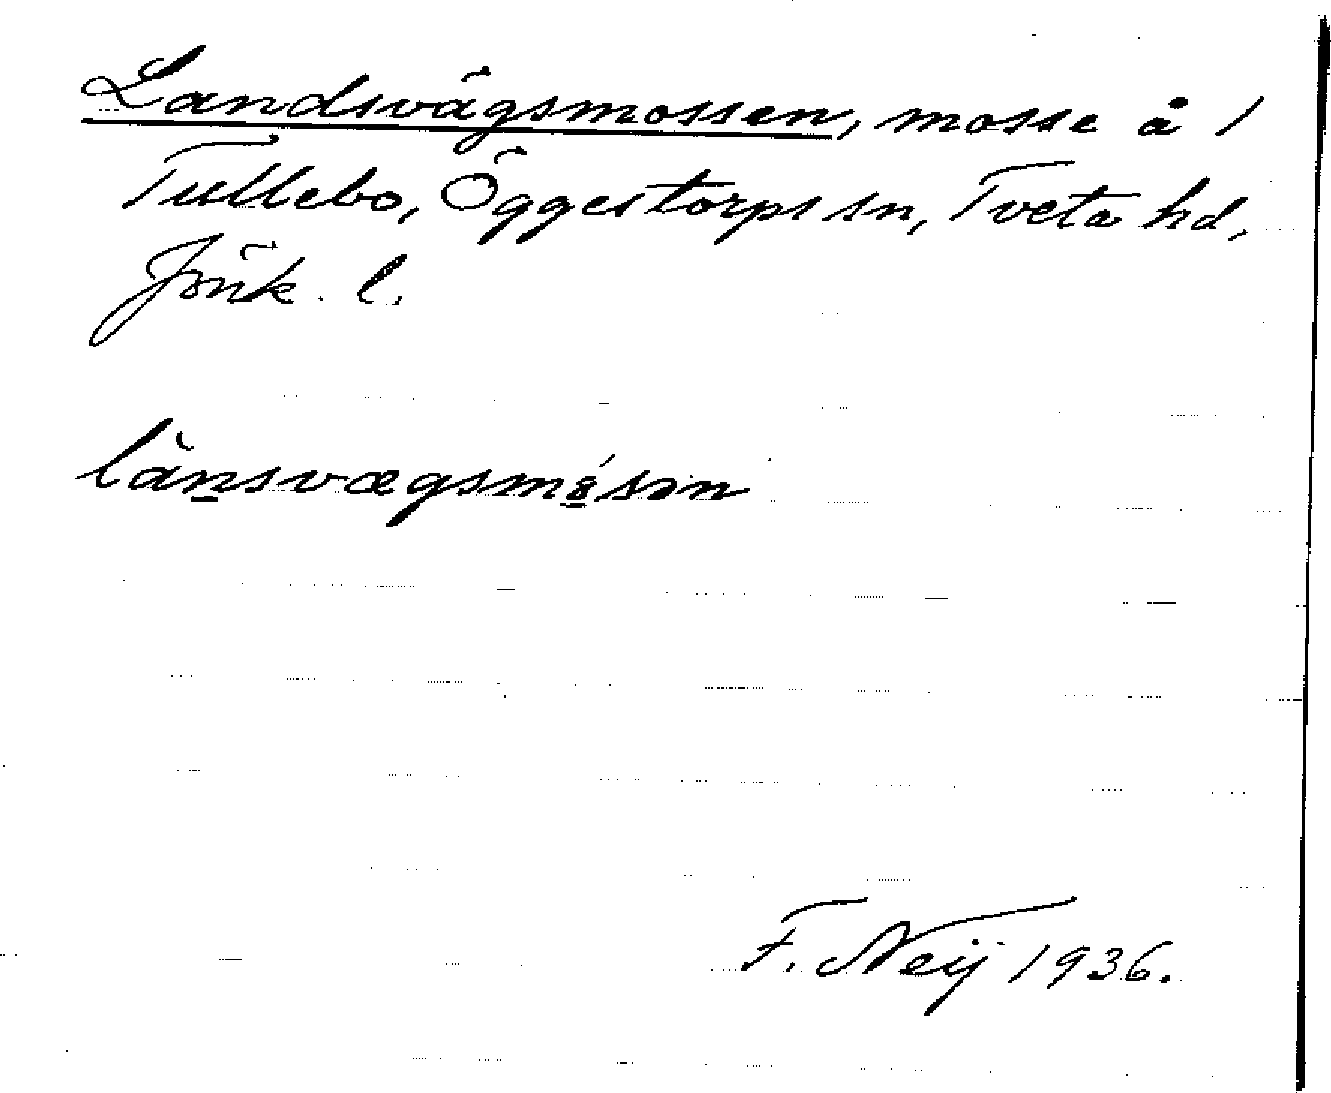 Landsvägsmossen, mosse å 1
Tullebo, Öggestorps sn, Tveta hd,
Jönk. l.
lànsvægsmǻsən
F. Neij 1936.